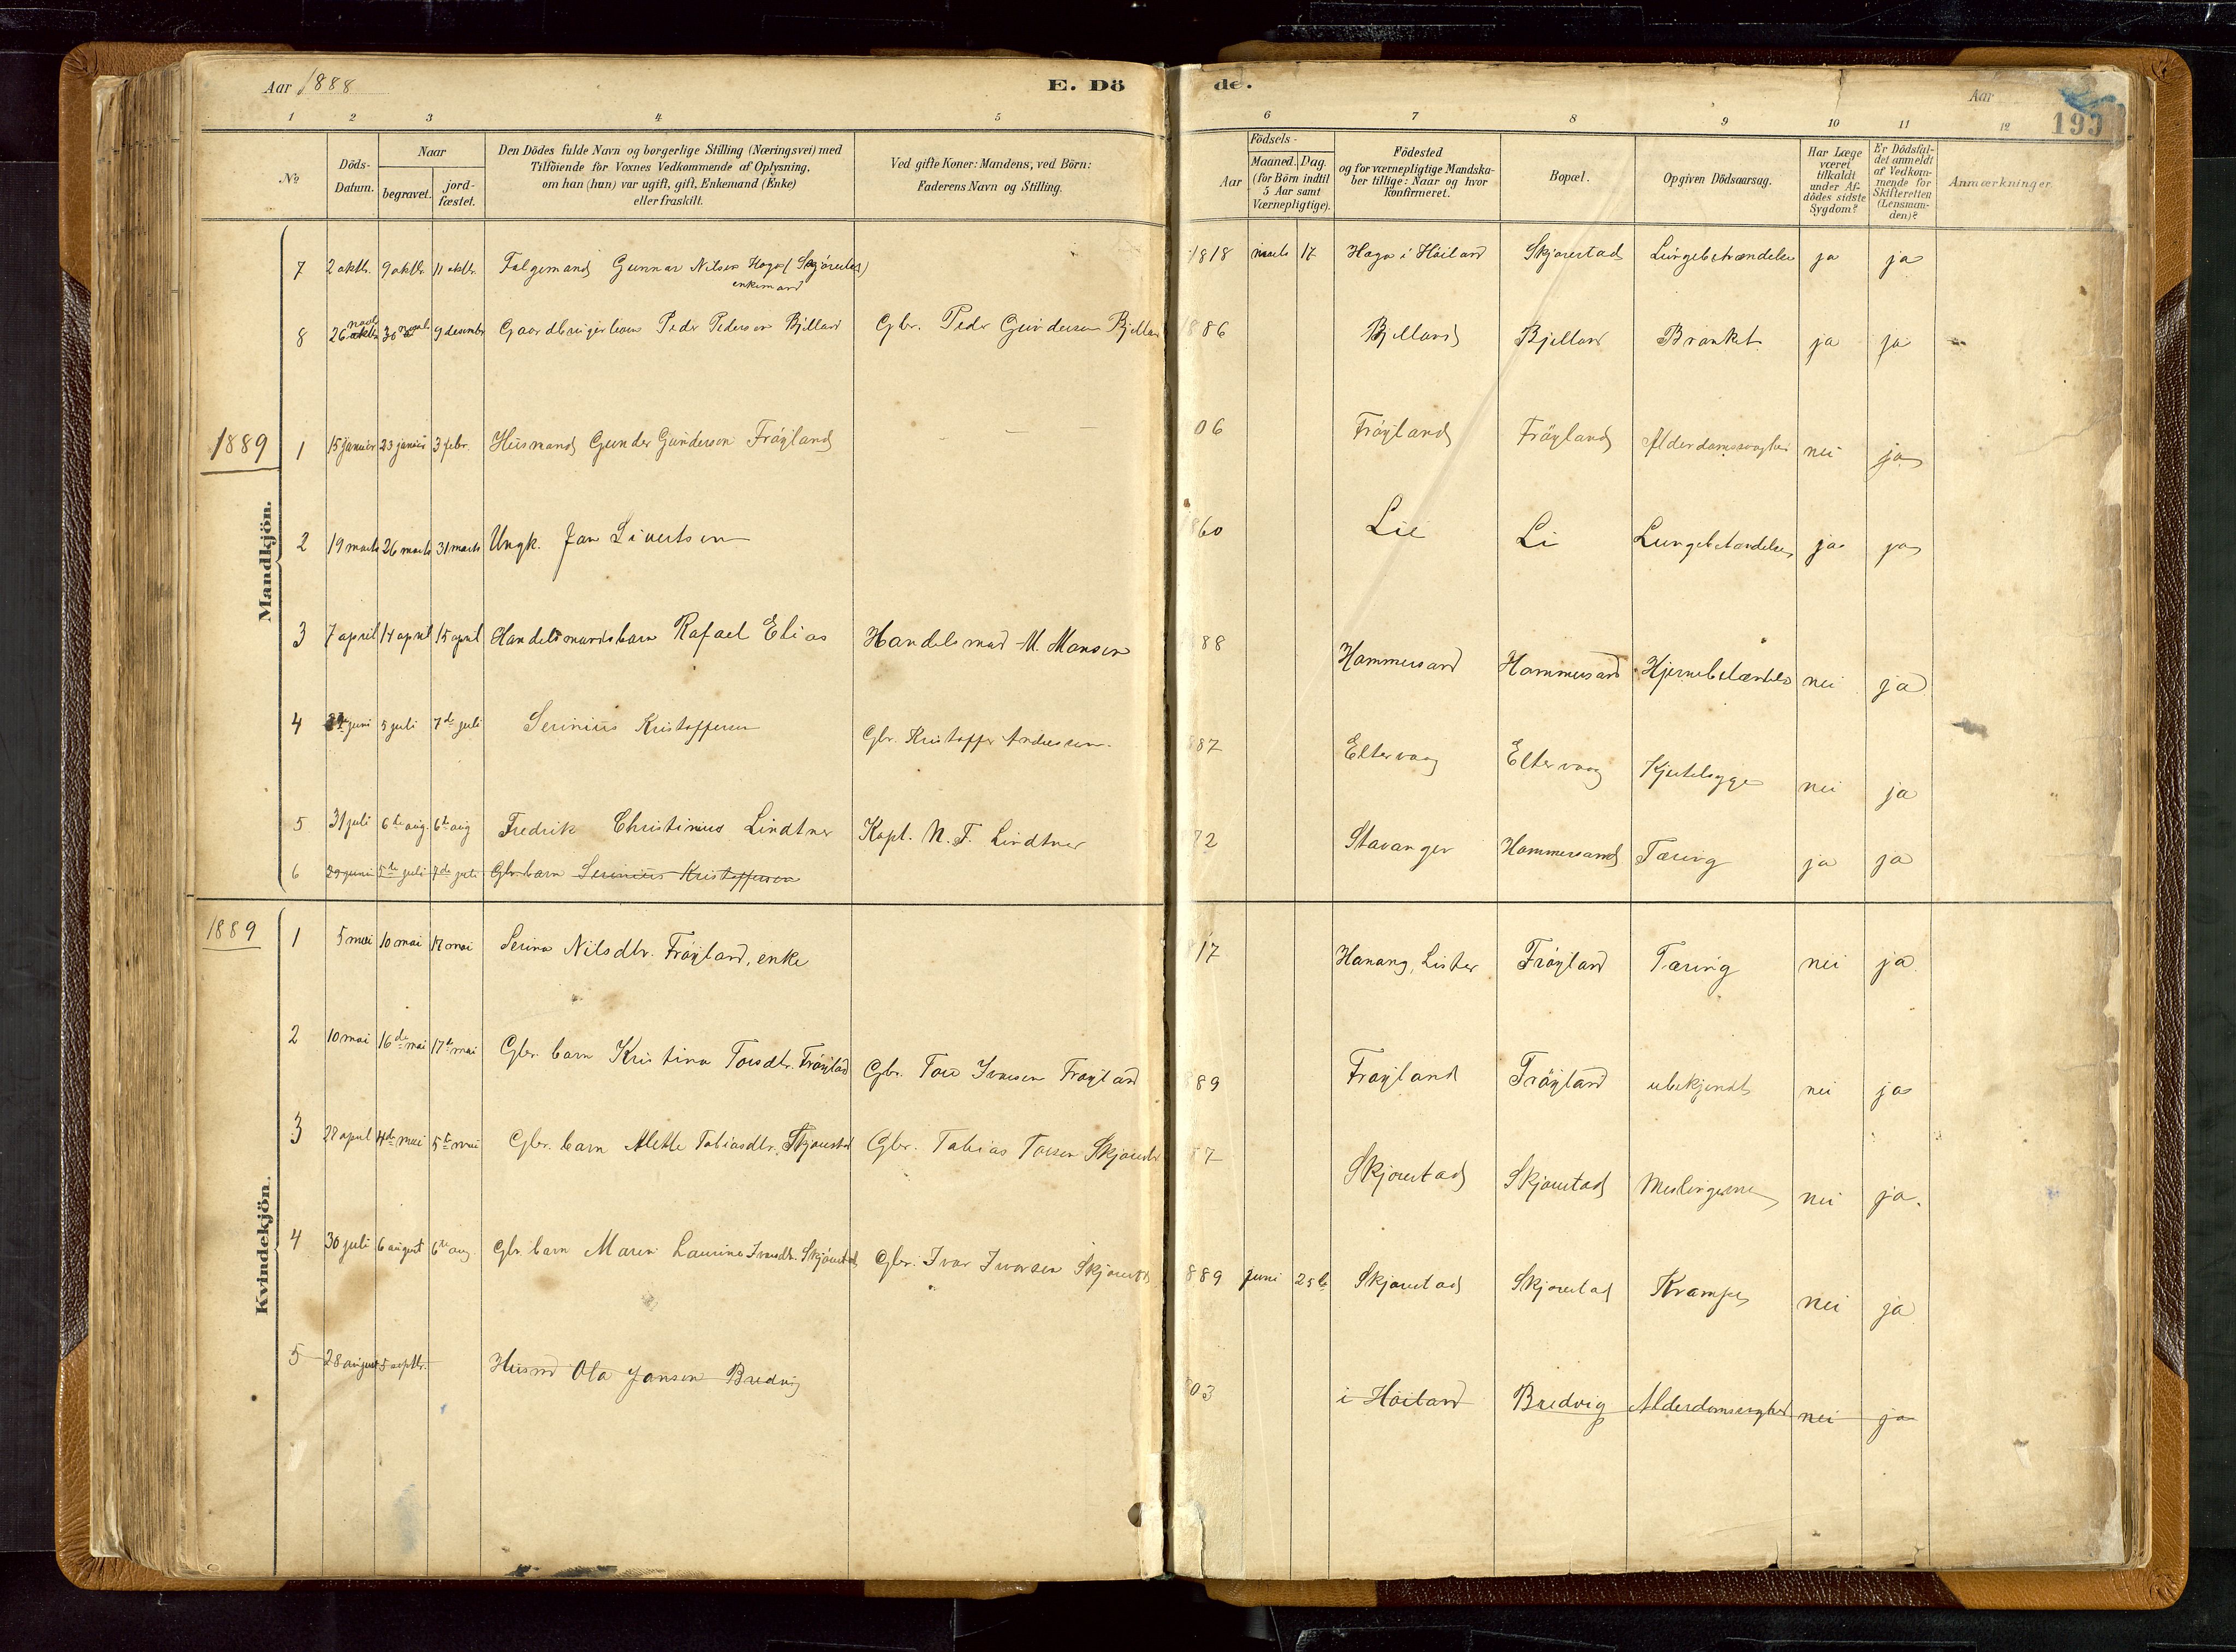 Aar 1888
E. Dö
de.
Aar
193
1 2 3 4 5 6 7 8 9 10 11 12
No
Döds-Datum.
Naar
begravet.
jord-fæstet.
Den Dödes fulde Navn og borgerlige Stilling (Næringsvei) med
Tilföiende for Voxnes Vedkommende af Oplysning.
om han (hun) var ugift, gift, Enkemand (Enke)
eller fraskilt.
Ved gifte Koner: Mandens, ved Börn:
Faderens Navn og Stilling.
Födsels-
Aar
Maaned. Dag.
(for Börn indtil
5 Aar samt
Værnepligtige).
Födested
og for værnepligtige Mandska-
ber tillige: Naar og hvor
konfirmeret.
Bopæl.
Opgiven Dödsaarsag.
Har Læge
været
tilkaldt
under Af-
dödes sidste
Sygdom?
Er Dödsfal-
det anmeldt
af Vedkom-
mende for
Skifteretten
(Lensman-
den)?
Anmærkninger
7 2 oktbr. 9 oktbr. 11 oktbr. Gunnar Nilsen Haga (Skjørestad) 1818 marts 17 Haga i Høiland Skjørestad Lungebetændelse ja ja
enkemand
8 26 novb 30 novb 9 decembr Gaardbrugerbarn Peder Pedersen Bjelland Gbr. Peder Gundersen Bjelland 1886 Bjelland Bjelland Bronkit ja ja
1889
Mandkjön.
1 15 januar 23 januar 3 febr. Husmand Gunder Gunderson Frøyland 06 Frøyland Frøyland Alderdomssvaghed nei ja
2 19 marts 26 marts 31 marts Ungk. Jan Sivertsen 60 Lie Li Lungebetændelse ja ja
3 7 april 14 april 15 april Handelsmandsbarn Rafael Elias Handelsmand M. Monsen 88 Hammersand Hammersand Hjernebetændelse nei ja
4 juni 5 juli 7de juli Serinius Kristoffersen Gbr. Kristoffer Andreassen. 87 Eltervaag Eltervaag Kjertelsyge nei ja
5 31 juli 6te aug. 6te aug Fredrik Christinius Lindtner Kapt. N. F. Lindtner 72 Stavanger Hammersand Tæring ja ja
6 29 juni 5te juli 7de juli Gbr. barn Serinius Kristoffersen
1889
Kvindekjön.
1 5 mai 10 mai 12 mai Serina Nilsdtr. Frøyland, enke 17 Hanang, Lister Frøyland Tæring nei ja
2 10 mai 16de mai 17de mai Gbr. barn Kristina Toresdtr. Frøyland Gbr. Tore Ivarsen Frøyland 89 Frøyland Frøyland ubekjendt nei ja
3 28 april 4de mai 5te mai Gbr. barn Mette Tobiasdtr. Skjørestad Gbr. Tobias Toresen Skjørestad 87 Skjørestad Skjørestad Meslingerne nei ja.
4 30 juli 6 august 6te aug. Gbr. barn Maren Laurine Ivarsdtr. Skjørestad Gbr. Ivar Ivarsen Skjørestad 889 Juni 25de Skjørestad Skjørestad Krampe nei ja
5 28 august 5 septbr. Husmd Ola Jansen Bredvig 03 i Høiland Bredvig Alderdomssvaghed nei ja